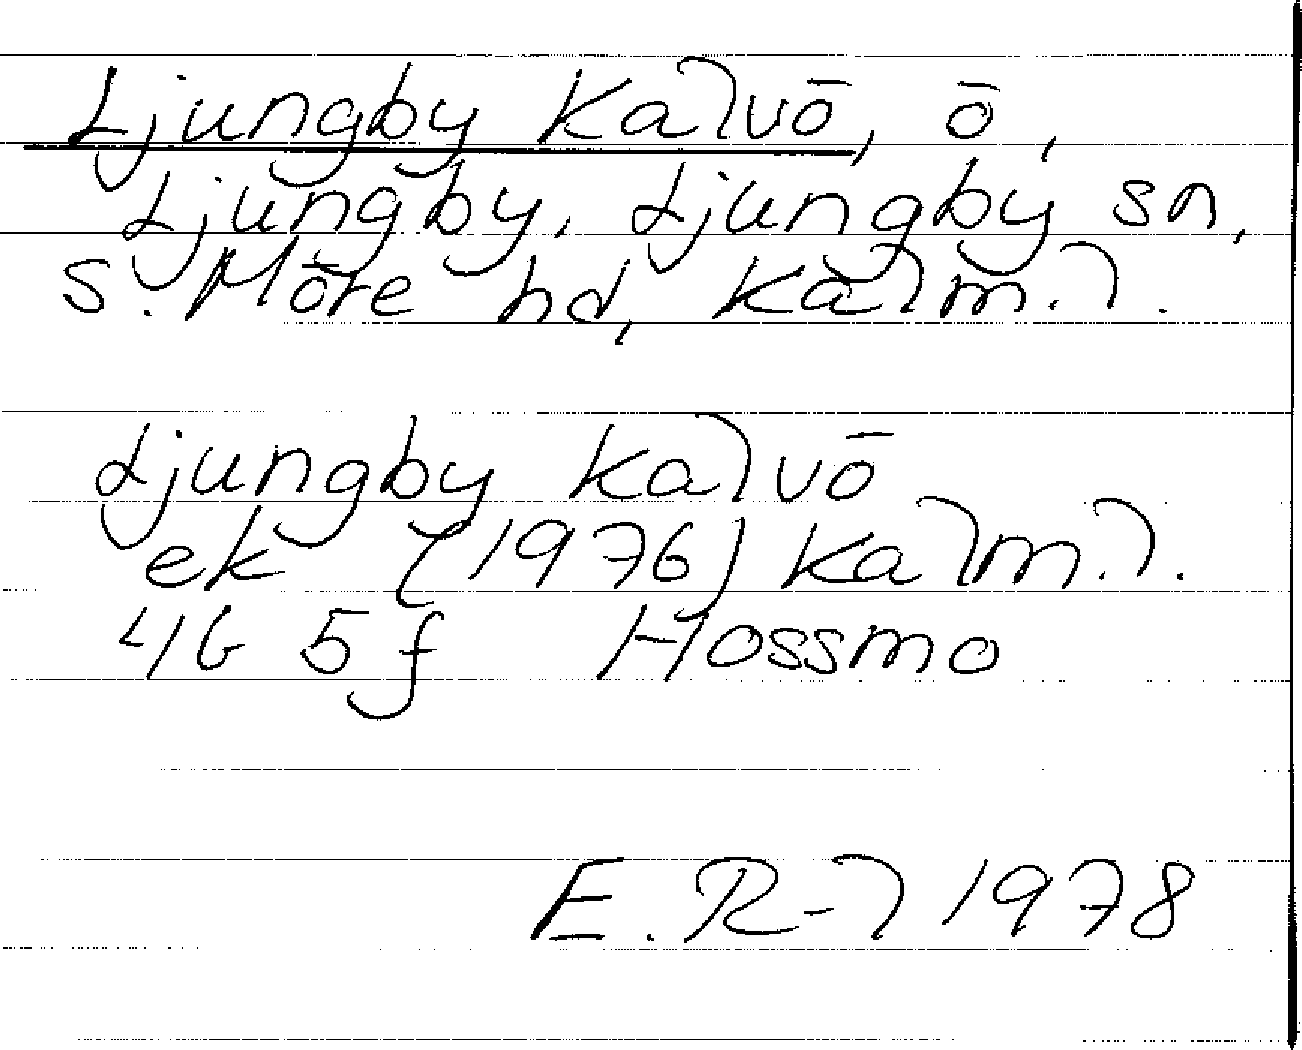 Ljungby Kalvö, ö,
Ljungby, Ljungby sn,
S. Möre hd, Kalm. l.
Ljungby Kalvö
ek (1976) Kalm. l.
4G 5f Hossmo
E. R-l 1978